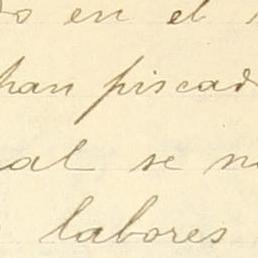 en el
han piscad
al se n
labores